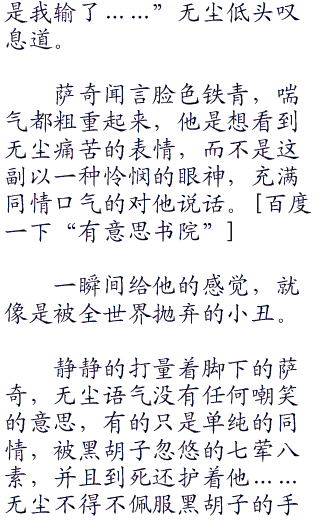 是我输了……”无尘低头叹
息道。
萨奇闻言脸色铁青，喘
气都粗重起来，他是想看到
无尘痛苦的表情，而不是这
副以一种怜悯的眼神，充满
同情口气的对他说话。[百度
一下“有意思书院”]
一瞬间给他的感觉，就
像是被全世界抛弃的小丑。
静静的打量着脚下的萨
奇，无尘语气没有任何嘲笑
的意思，有的只是单纯的同
情，被黑胡子忽悠的七荤八
素，并且到死还护着他……
无尘不得不佩服黑胡子的手